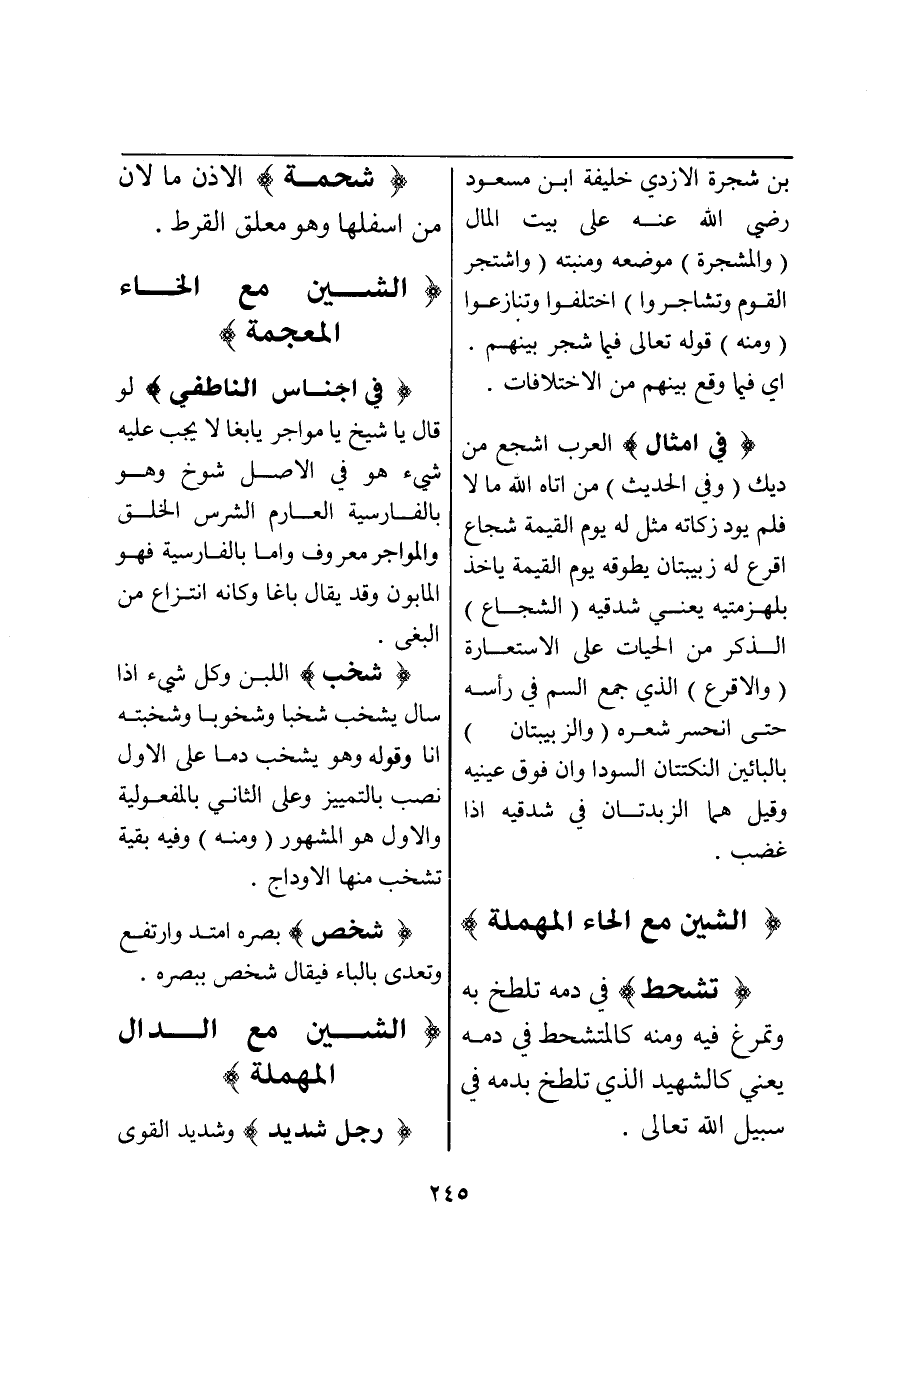 بن شجرة الازدي خليفة ابـن مسعـود
رضي الله عنـه على بيت المال
( والمشجرة ) موضعه ومنبته ( واشتجر
القوم وتشاجروا ) اختلفـوا وتنازعـوا
( ومنه ) قوله تعالى فيما شجر بينهـم .
اي فيما وقع بينهم من الاختلافات .
﴿ في امثال ﴾ العرب اشجع من
ديك ( وفي الحديث ) من اتاه الله مالا
فلم يود زكاته مثل له يوم القيمة شجاع
اقرع له زبيبتان يطوقه يوم القيمة ياخذ
بلهزمتيه يعنـي شدقيه ( الشجـاع )
الـذكر من الحيات على الاستعـارة
( والاقرع ) الذي جمع السم في رأسـه
حتـى انحسر شعـره ( والزبيبتان )
بالبائين النكتتان السودا وان فوق عينيه
وقيل هما الزبدتـان في شدقيه اذا
غضب .
﴿ الشين مع الحاء المهملة ﴾
﴿ تشحط ﴾ في دمه تلطخ به
وتمرغ فيه ومنه كالمتشحط في دمـه
يعني كالشهيد الذي تلطخ بدمه في
سبيل الله تعالى .
﴿ شحمـة ﴾ الاذن ما لان
من اسفلها وهو معلق القرط .
﴿ الشـين مع الخـاء
المعجمة ﴾
﴿ في اجنـاس الناطفي ﴾ لو
قال يا شيخ يا مواجر يابغا لا يجب عليه
شيء هو في الاصـل شوخ وهـو
بالفـارسية العـارم الشرس الخلـق
والمواجر معروف وامـا بالفـارسية فهـو
المابون وقد يقال باغا وكانه انتـزاع من
البغى .
﴿ شخب ﴾ اللبـن وكل شيء اذا
سال يشخب شخبا وشخوبـا وشخبتـه
انا وقوله وهو يشخب دمـا على الاول
نصب بالتمييز وعلى الثاني بالمفعـولية
والاول هو المشهور ( ومنـه ) وفيه بقية
تشخب منها الاوداج .
﴿ شخص ﴾ بصره امتـد وارتفـع
وتعدى بالباء فيقال شخص ببصره .
﴿ الشـين مع الـدال
المهملة ﴾
﴿ رجل شديد ﴾ وشديد القوى
٢٤٥